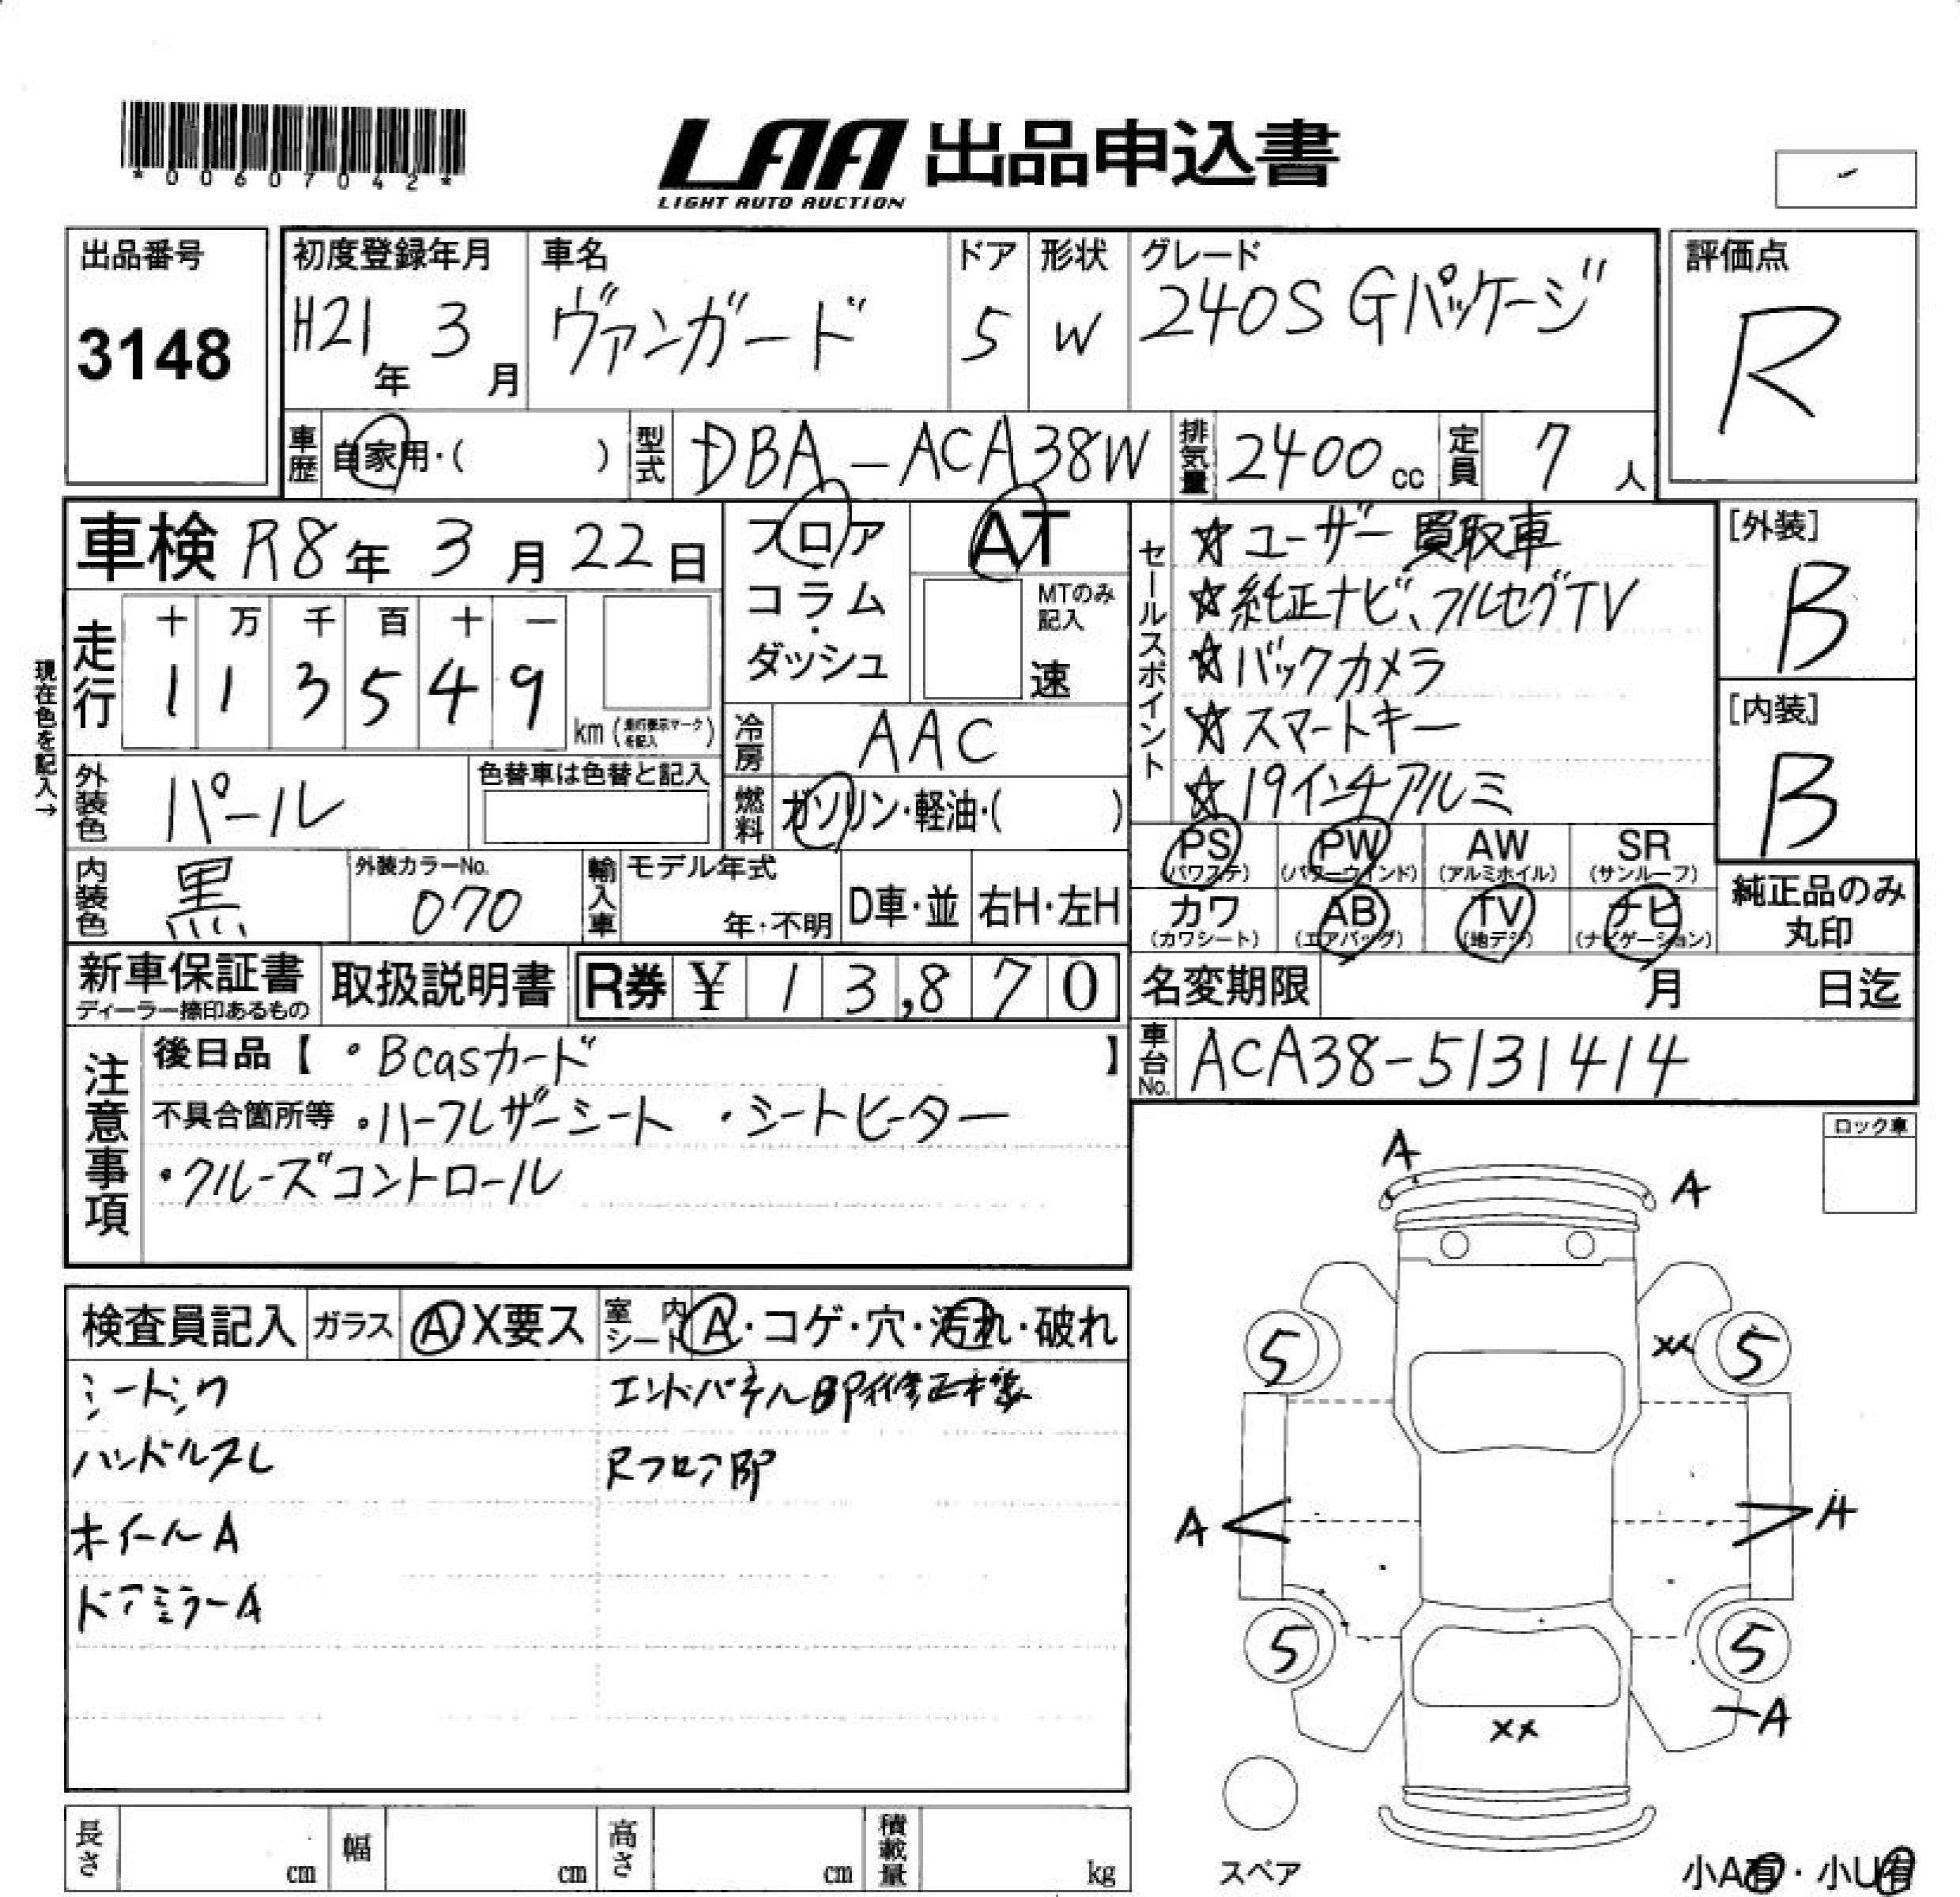 *00607042*
LAA 出品申込書
LIGHT AUTO AUCTION
出品番号
3148
初度登録年月
H21年 3月
車名
ヴァンガード
ドア
5
形状
W
グレード
240S Gパッケージ
評価点
R
車歴 自家用・( )
型式 DBA-ACA38W
排気量 2400cc
定員 7人
車検 R8年 3月 22日
フロア・コラム・ダッシュ
AT
MTのみ記入
速
セールスポイント
☆ユーザー買取車
☆純正ナビ、フルセグTV
☆バックカメラ
☆スマートキー
☆19インチアルミ
[外装]
B
[内装]
B
現在色を記入→
走行
十 万 千 百 十 一
1 1 3 5 4 9
km (走行表示マークを記入)
冷房 AAC
外装色 パール
色替車は色替と記入
燃料 ガソリン・軽油・( )
PS (パワステ)
PW (パワーウインド)
AW (アルミホイル)
SR (サンルーフ)
カワ (カワシート)
AB (エアバッグ)
TV (地デジ)
ナビ (ナビゲーション)
純正品のみ丸印
内装色 黒
外装カラーNo. 070
輸入車
モデル年式
年・不明
D車・並
右H・左H
新車保証書
ディーラー捺印あるもの
取扱説明書
R券 ¥ 13,870
名変期限 月 日迄
車台No. ACA38-5131414
注意事項
後日品【・Bcasカード 】
不具合箇所等 ・ハーフレザーシート ・シートヒーター
・クルーズコントロール
ロック車
検査員記入
ガラス A X要ス
室内シート A・コゲ・穴・汚れ・破れ
ハンドルスレ
Rフロア部P
ホイールA
ドアミラーA
A
A
5
XX
5
A
A
5
5
A
XX
スペア
小A有・小U有
長さ cm
幅 cm
高さ cm
積載量 kg